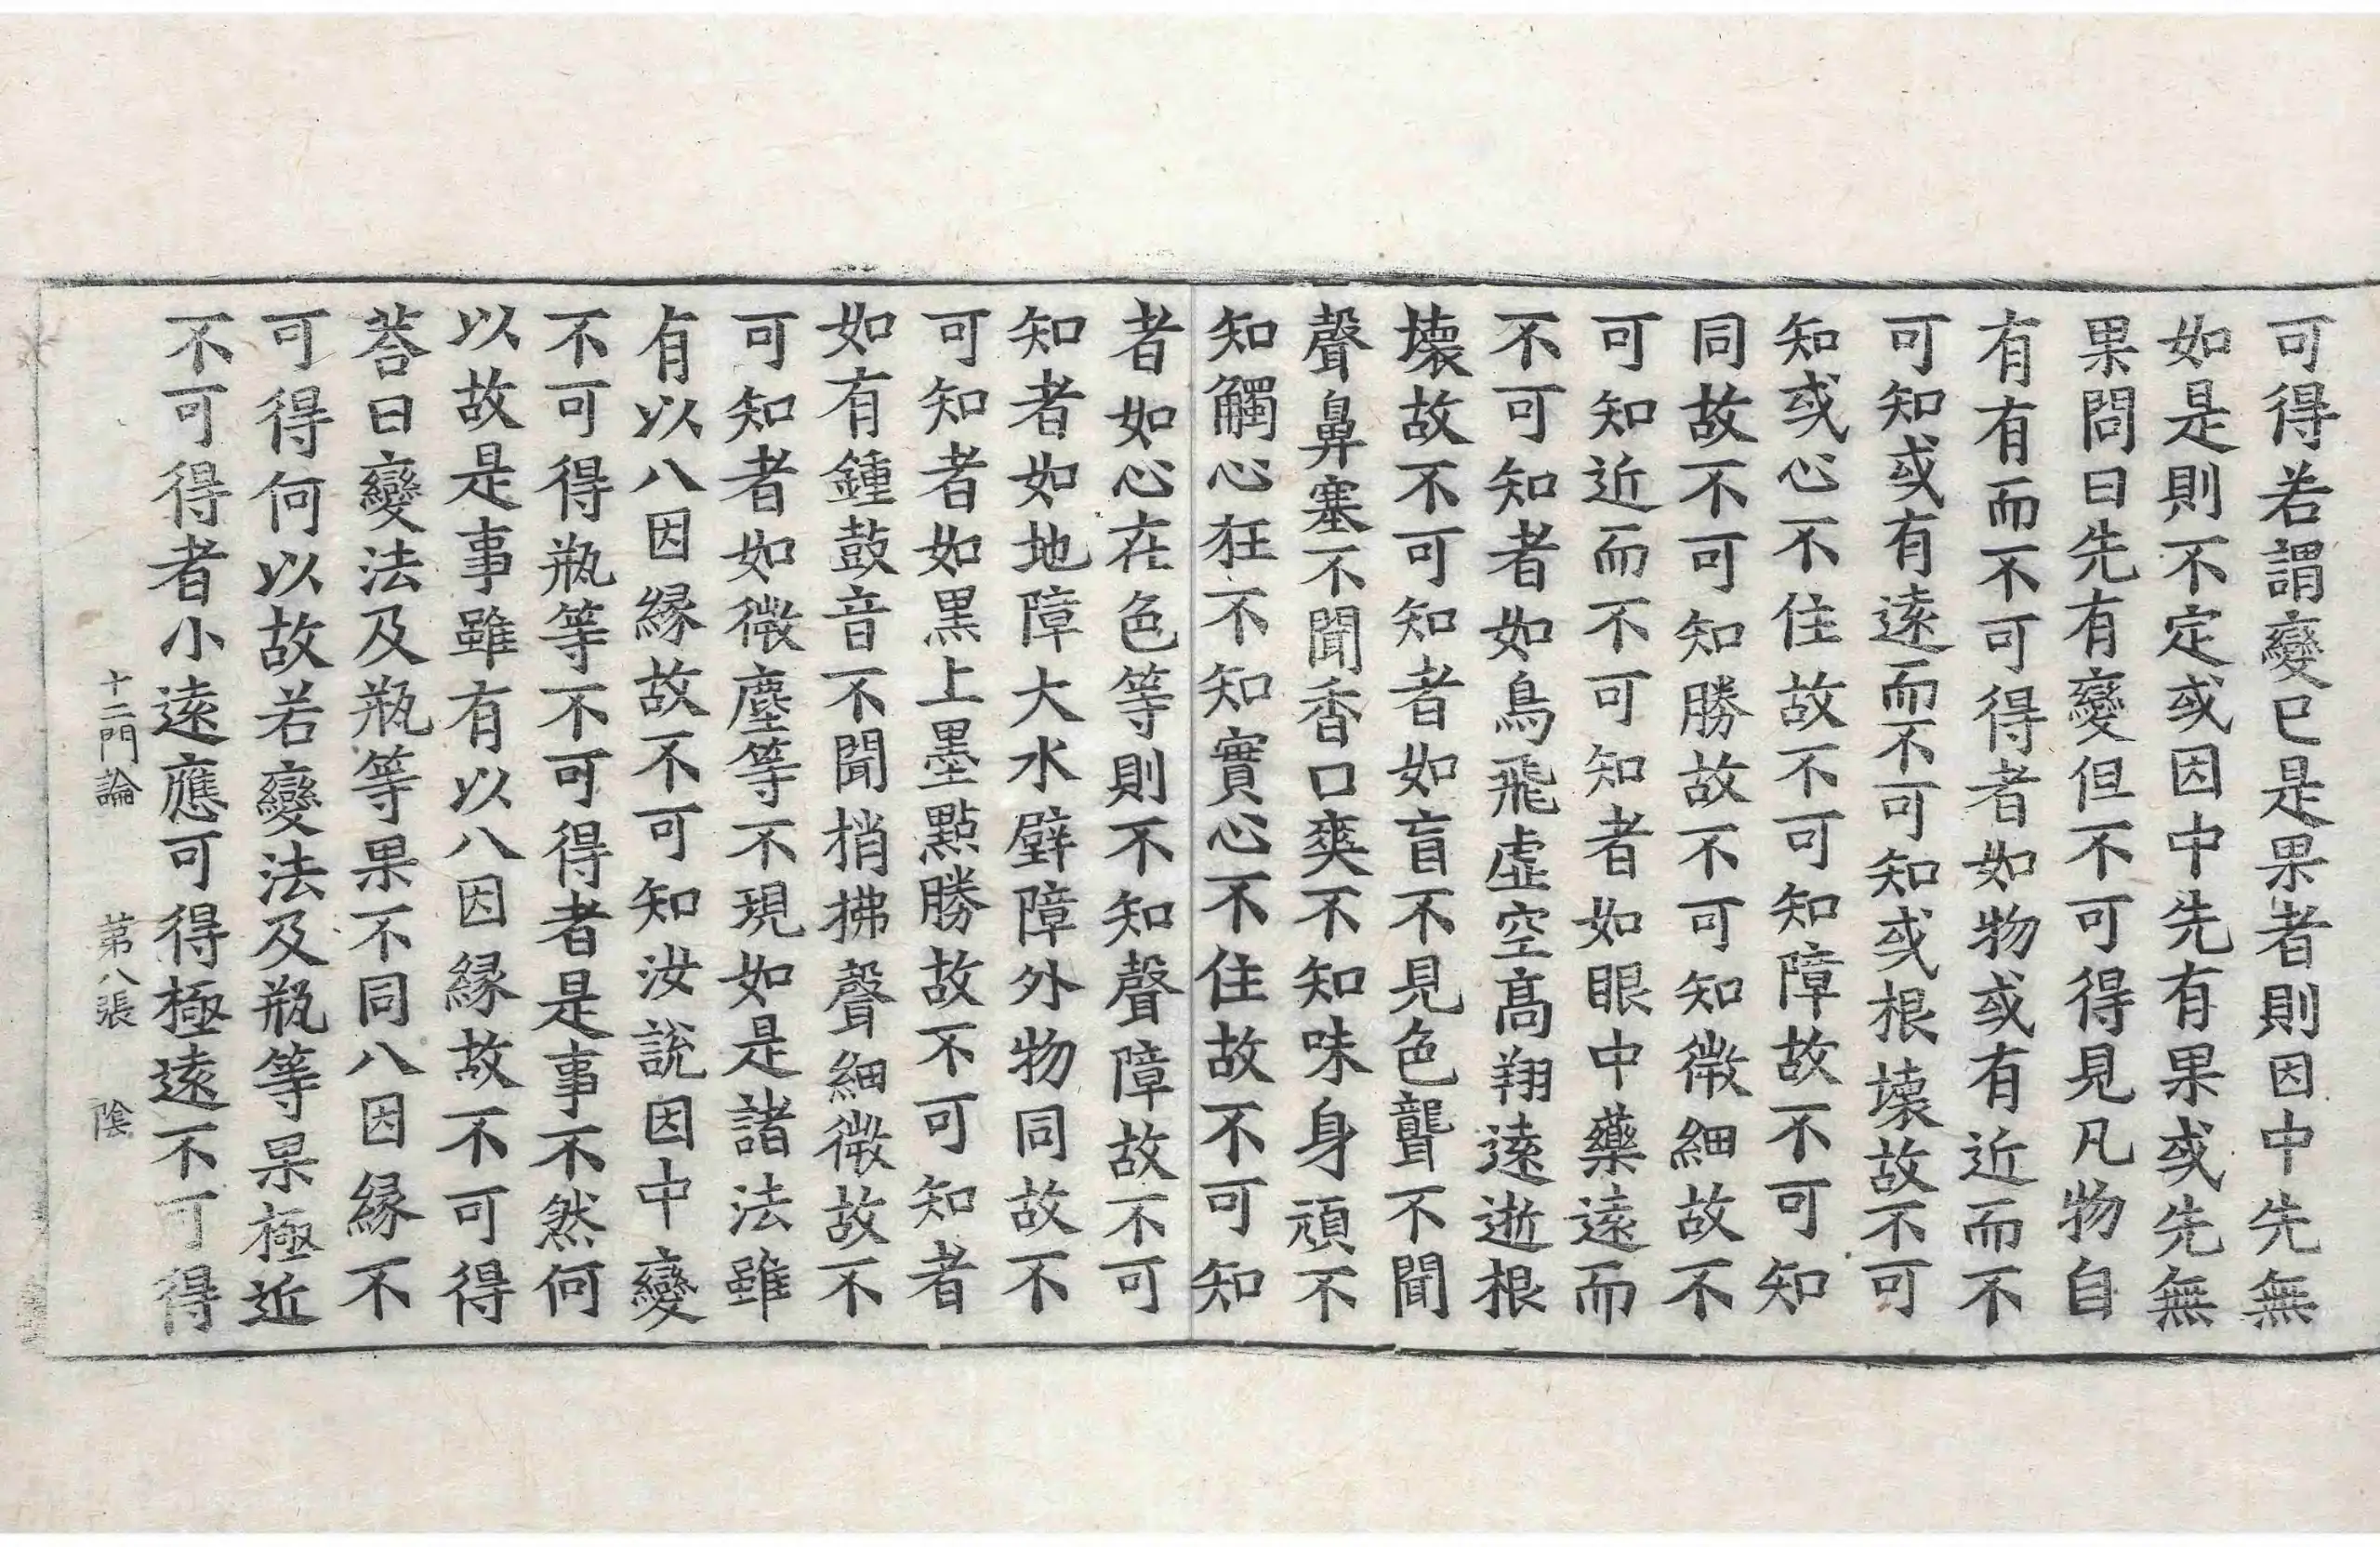 可得若謂變已是果者則因中先無
如是則不定或因中先有果或先無
果問曰先有變但不可得見凡物自
有有而不可得者如物或有近而不
可知或有遠而不可知或根壞故不可
知或心不住故不可知障故不可知
同故不可知勝故不可知微細故不
可知近而不可知者如眼中藥遠而
不可知者如鳥飛虛空高翔遠逝根
壞故不可知者如盲不見色聾不聞
聲鼻塞不聞香口爽不知味身頑不
知觸心狂不知實心不住故不可知
者如心在色等則不知聲障故不可
知者如地障大水壁障外物同故不
可知者如黑上墨點勝故不可知者
如有鍾鼓音不聞捎拂聲細微故不
可知者如微塵等不現如是諸法雖
有以八因緣故不可知汝說因中變
不可得瓶等不可得者是事不然何
以故是事雖有以八因緣故不可得
荅曰變法及瓶等果不同八因緣不
可得何以故若變法及瓶等果極近
不可得者小遠應可得極遠不可得
十二門論　第八張　陰